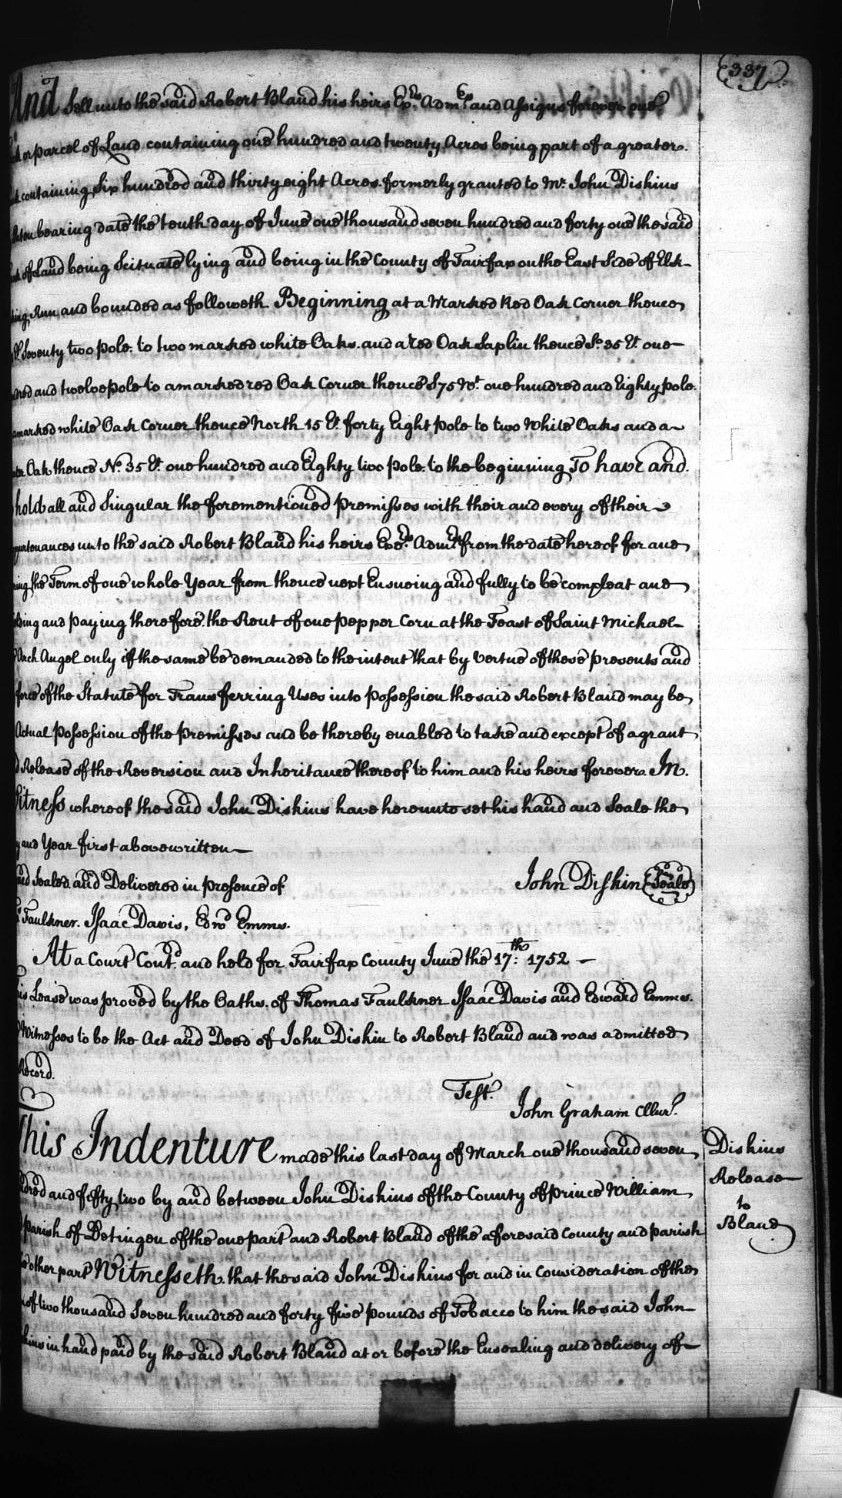 337
And Sell unto the said Robert Bland his heirs Exrs. Admrs and Assigns forever one
or parcel of Land containing one hundred and twenty Acres being part of a greater
containing Six hundred and thirty eight Acres formerly granted to Mr. John Diskins
bearing date the tenth day of June one thousand seven hundred and forty one the said
of Land being Scituate lying and being in the County of Fairfax on the East Side of Elk-
Run and bounded as followeth Beginning at a Marked Red Oak Corner thence
Seventy two pole to two marked white Oaks and a red Oak Saplin thence So. 35 Et one
and twelve pole to a marked red Oak Corner thence S75 Wt. one hundred and Eighty pole
marked white Oak Corner thence North 15 Et. forty Eight pole to two White Oaks and a
Oak thence No. 35 Et. one hundred and Eighty two pole to the beginning To have and
hold all and Singular the forementioned premisses with their and every of their
unto the said Robert Bland his heirs Exrs. Admrs from the date hereof for and
the Term of one whole Year from thence next Ensueing and fully to be compleat and
and paying therefore the Rent of one pepper Corn at the Feast of Saint Michael
Arch Angel only if the same be demanded to the intent that by vertue of these presents and
force of the Statute for Transferring Uses into possession the said Robert Bland may be
Actual possession of the premisses and be thereby enabled to take and except of a grant
Release of the Reversion and Inheritance thereof to him and his heirs forever In
Witness whereof the said John Diskins have hereunto set his hand and Seale the
and Year first above written
Sealed and Delivered in presence of John Diskin Seale
Faulkner. Isaac Davis, Edwd Emms.
At a Court Contd. and held for Fairfax County June the 17th: 1752
Lease was proved by the Oaths of Thomas Faulkner Isaac Davis and Edward Emms.
Witnesses to be the Act and Deed of John Diskin to Robert Bland and was admitted
Record.
Test.
John Graham ClCur.
This Indenture made this last day of March one thousand seven
and fifty two by and between John Diskins of the County of Prince William
parish of Detingen of the one part and Robert Bland of the aforesaid County and parish
other part Witnesseth that the said John Diskins for and in Consideration of the
of two thousand Seven hundred and forty five pounds of Tobacco to him the said John
in hand paid by the said Robert Bland at or before the Ensealing and delivery of
Diskins
Release
to
Bland